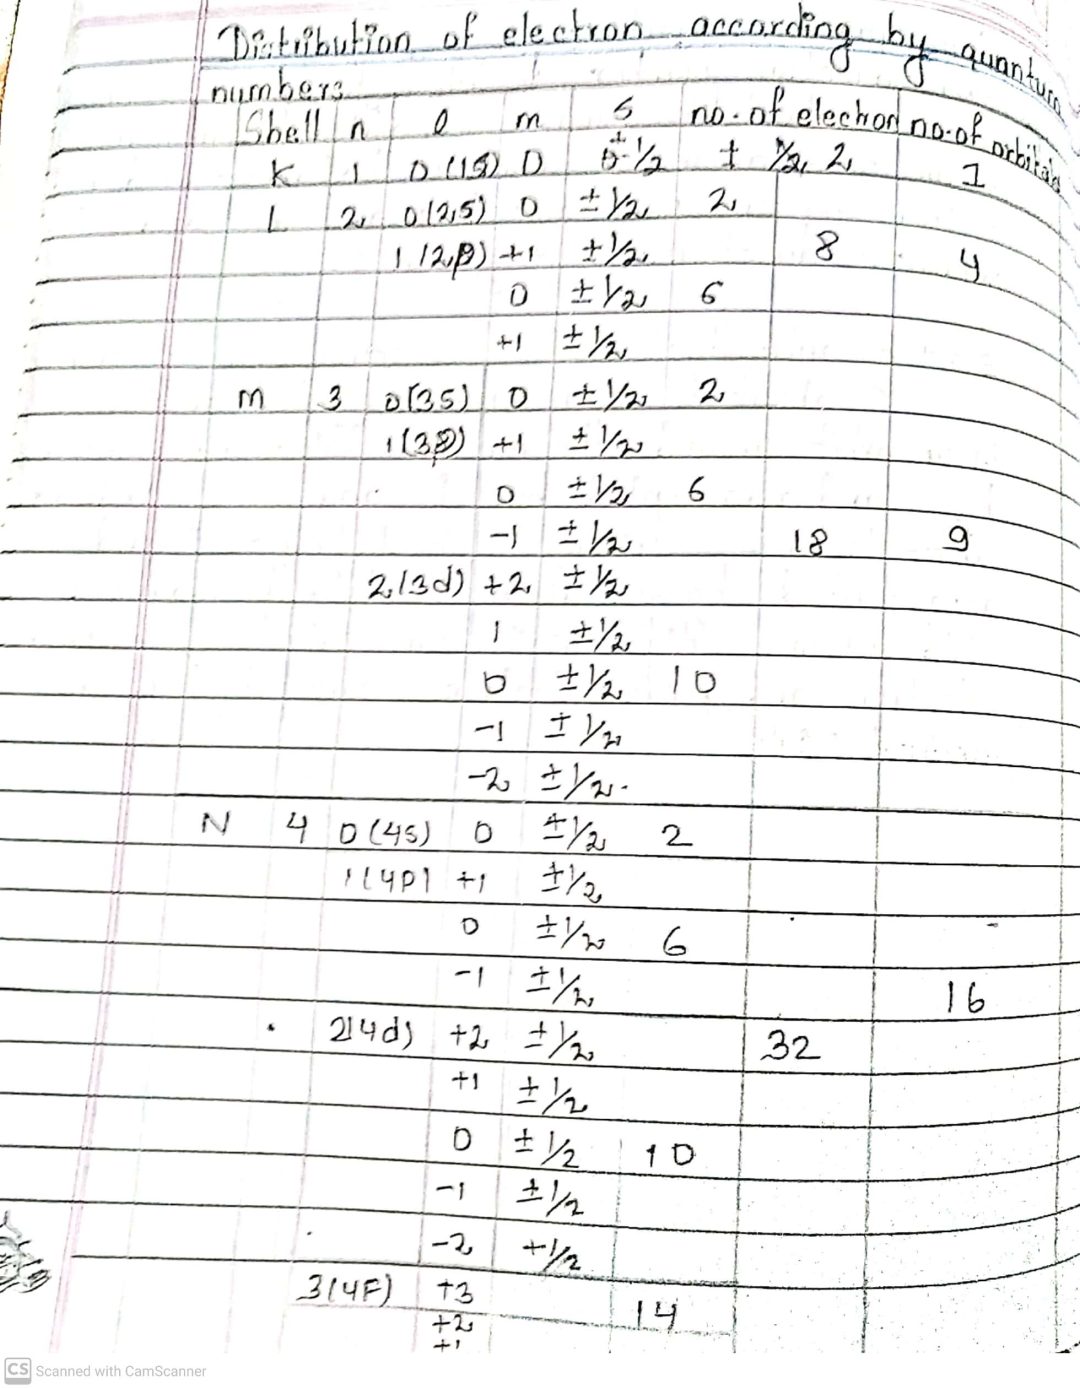 Distribution of electron according by quantum
numbers
Shell n l m s no. of electron no. of orbitals
K 1 0 (1s) 0 ± 1/2 ± 1/2, 2 1
L 2 0(2,s) 0 ±1/2 2
1 (2p) +1 ±1/2 8 4
0 ±1/2 6
+1 ±1/2
m 3 0(3s) 0 ±1/2 2
1(3p) +1 ±1/2
0 ±1/2 6
-1 ±1/2 18 9
2(3d) +2 ±1/2
1 ±1/2
0 ±1/2 10
-1 ±1/2
-2 ±1/2.
N 4 0(4s) 0 ±1/2 2
1(4p) +1 ±1/2
0 ±1/2 6
-1 ±1/2 16
2(4d) +2 ±1/2 32
+1 ±1/2
0 ±1/2 10
-1 ±1/2
-2 +1/2
3(4F) +3 14
+2
+1
CS Scanned with CamScanner